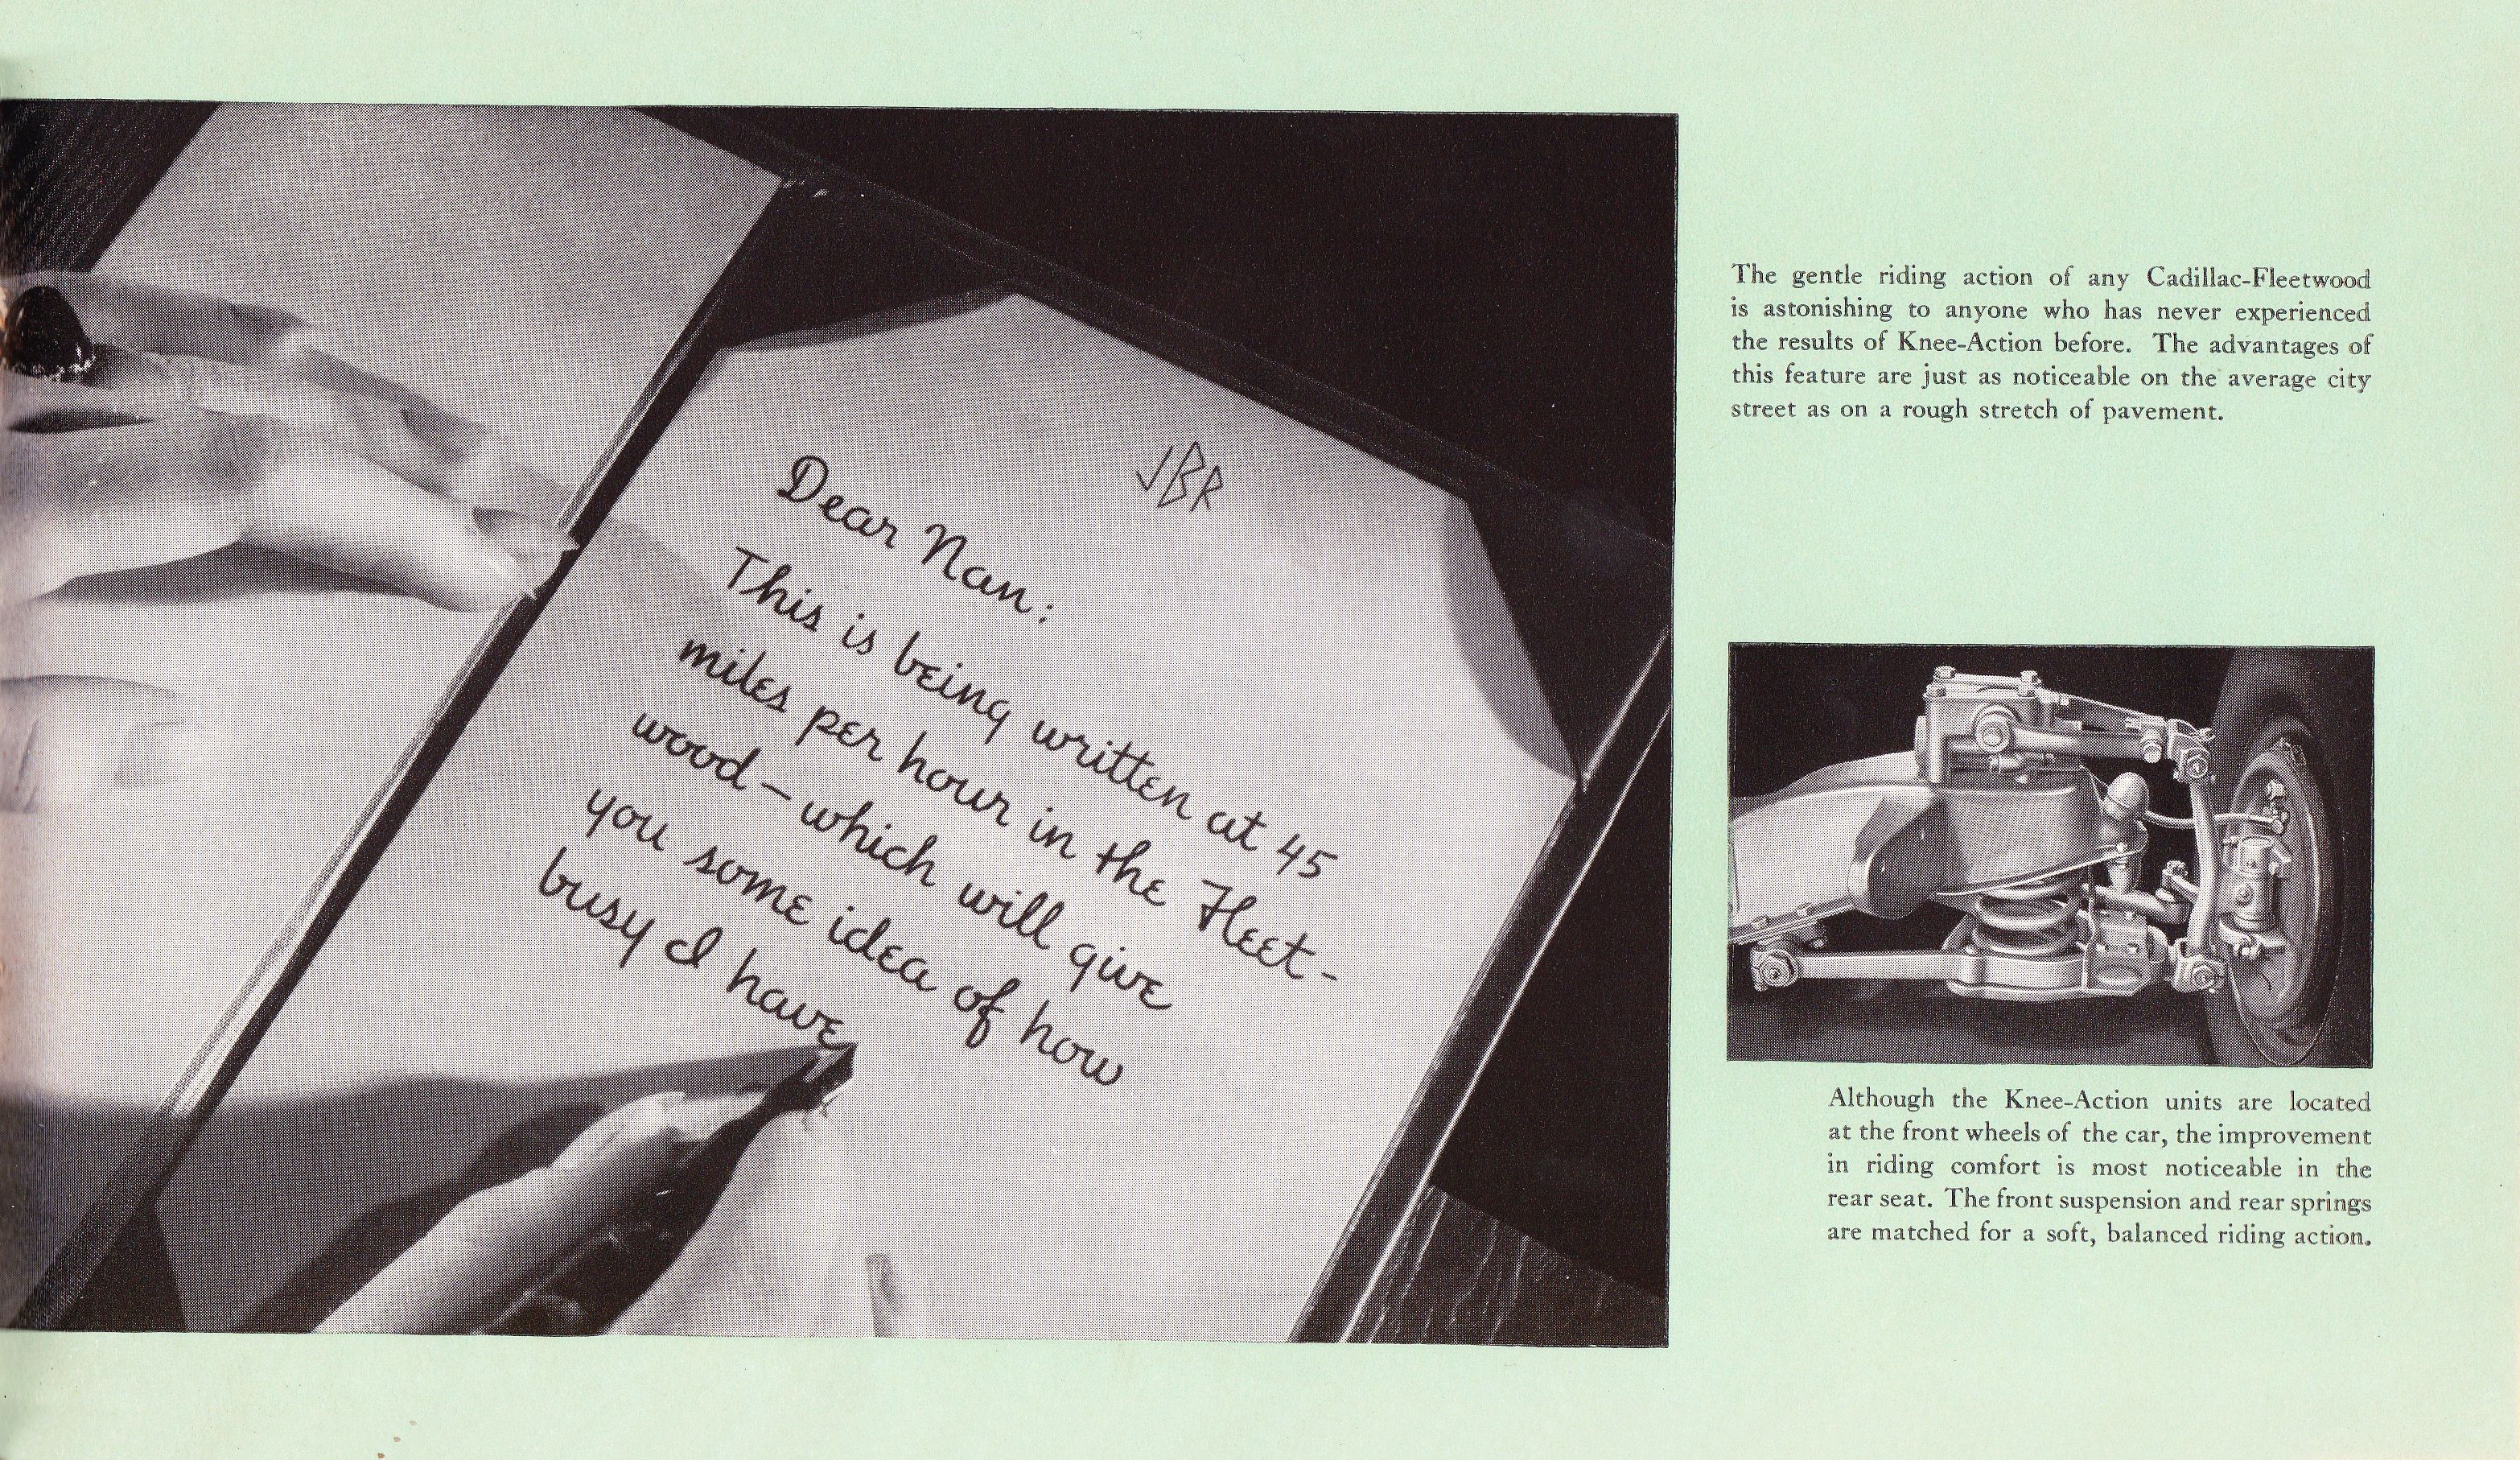 JBR
Dear Nan:
This is being written at 45
miles per hour in the Fleet-
wood – which will give
you some idea of how
busy I have
The gentle riding action of any Cadillac-Fleetwood
is astonishing to anyone who has never experienced
the results of Knee-Action before. The advantages of
this feature are just as noticeable on the average city
street as on a rough stretch of pavement.
Although the Knee-Action units are located
at the front wheels of the car, the improvement
in riding comfort is most noticeable in the
rear seat. The front suspension and rear springs
are matched for a soft, balanced riding action.